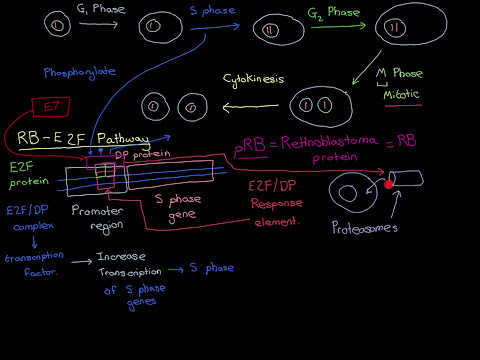 G1 Phase
S phase
G2 Phase
M Phase
Mitotic
Cytokinesis
Phosphorylate
E7
RB-E2F Pathway
pRB = Retinoblastoma protein = RB
DP protein
E2F protein
E2F/DP complex
Promoter region
S phase gene
E2F/DP Response element.
Proteasomes
transcription factor.
Increase Transcription of S phase genes
S phase